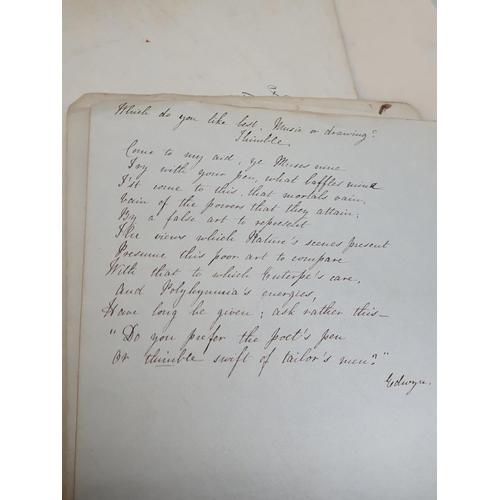 Which do you like best, Music or drawing?
Thimble.
Come to my aid, ye Muses nine
Try with your pen, what baffles mine
I'st come to this, that mortals vain,
Vain of the powers that they attain;
By a false art to represent
The views which Nature's scenes present
Presume this poor art to compare
With that to which Euterpe's care,
And Polyhymnia's energies,
Have long be given; ask rather this—
"Do you prefer the poet's pen
or thimble swift of tailor's men?"
Edwyn.